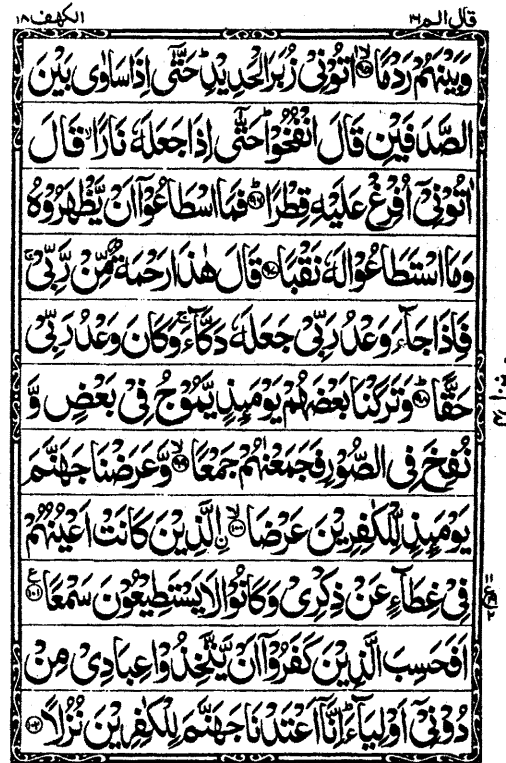 قال الم ١٦ الكهف ١٨
وَبَيْنَهُمْ رَدْمًا ۙ﴿٩٥﴾ اٰتُوْنِيْ زُبَرَ الْحَدِيْدِ ؕ حَتّٰۤى اِذَا سَاوٰى بَيْنَ
الصَّدَفَيْنِ قَالَ انْفُخُوْا ؕ حَتّٰۤى اِذَا جَعَلَهٗ نَارًا ۙ قَالَ
اٰتُوْنِيْۤ اُفْرِغْ عَلَيْهِ قِطْرًا ؕ﴿٩٦﴾ فَمَا اسْطَاعُوْۤا اَنْ يَّظْهَرُوْهُ
وَمَا اسْتَطَاعُوْا لَهٗ نَقْبًا ﴿٩٧﴾ قَالَ هٰذَا رَحْمَةٌ مِّنْ رَّبِّيْ ۚ
فَاِذَا جَآءَ وَعْدُ رَبِّيْ جَعَلَهٗ دَكَّآءَ ۚ وَكَانَ وَعْدُ رَبِّيْ
حَقًّا ؕ﴿٩٨﴾ وَتَرَكْنَا بَعْضَهُمْ يَوْمَىِٕذٍ يَّمُوْجُ فِيْ بَعْضٍ وَّ
نُفِخَ فِي الصُّوْرِ فَجَمَعْنٰهُمْ جَمْعًا ۙ﴿٩٩﴾ وَّعَرَضْنَا جَهَنَّمَ
يَوْمَىِٕذٍ لِّلْكٰفِرِيْنَ عَرْضَا ۙ﴿١٠٠﴾ ۨالَّذِيْنَ كَانَتْ اَعْيُنُهُمْ
فِيْ غِطَآءٍ عَنْ ذِكْرِيْ وَكَانُوْا لَا يَسْتَطِيْعُوْنَ سَمْعًا ﴿١٠١﴾ ع
اَفَحَسِبَ الَّذِيْنَ كَفَرُوْۤا اَنْ يَّتَّخِذُوْا عِبَادِيْ مِنْ
دُوْنِيْۤ اَوْلِيَآءَ ؕ اِنَّاۤ اَعْتَدْنَا جَهَنَّمَ لِلْكٰفِرِيْنَ نُزُلًا ﴿١٠٢﴾